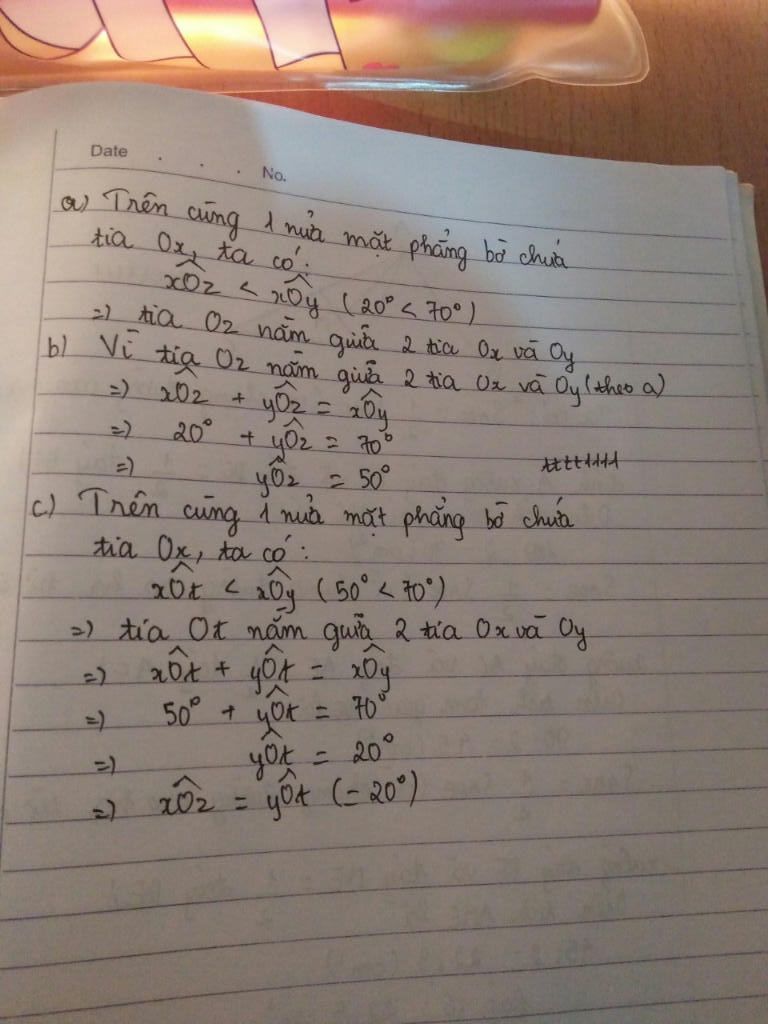 Date . . .
No.
a) Trên cùng 1 nửa mặt phẳng bờ chứa
tia Ox, ta có:
xÔz < xÔy (20° < 70°)
=) tia Oz nằm giữa 2 tia Ox và Oy
b) Vì tia Oz nằm giữa 2 tia Ox và Oy (theo a)
=) xÔz + yÔz = xÔy
=) 20° + yÔz = 70°
=) yÔz = 50°
c) Trên cùng 1 nửa mặt phẳng bờ chứa
tia Ox, ta có:
xÔt < xÔy (50° < 70°)
=) tia Ot nằm giữa 2 tia Ox và Oy
=) xÔt + yÔt = xÔy
=) 50° + yÔt = 70°
=) yÔt = 20°
=) xÔz = yÔt (= 20°)